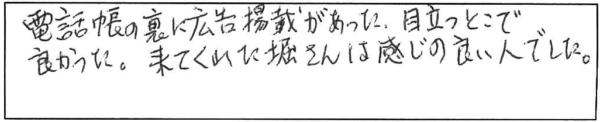 電話帳の裏に広告掲載があった、目立つとこで
良かった。来てくれた堀さんは感じの良い人でした。